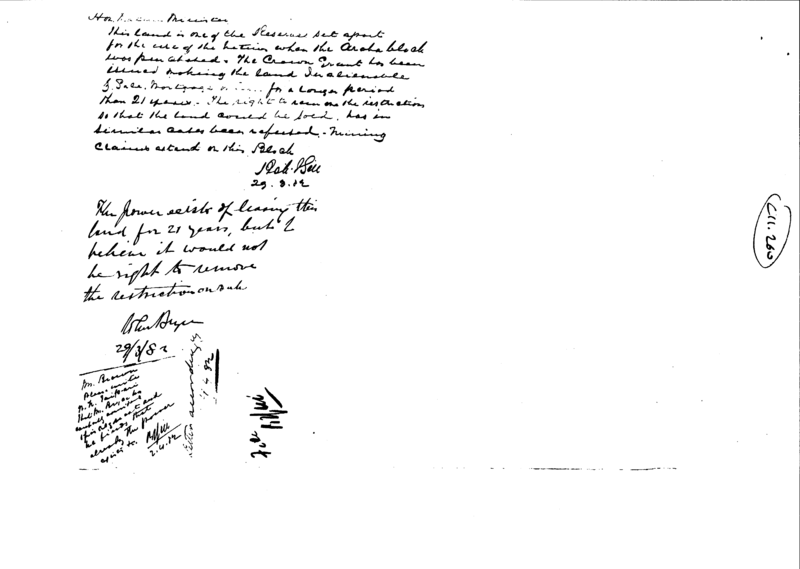 Hon Native Minister
This land is one of the Reserves set apart
for the use of the Natives when the Aroha block
was purchased. The Crown Grant has been
issued making the land Inalienable
by Sale, Mortgage or for a longer period
than 21 years. The right to remove the restrictions
so that the land could be sold, has in
similar cases been refused. Mining
Claims extend on this Block
29.3.82
The power exists of leasing this
land for 21 years, but I
believe it would not
be right to remove
the restriction on sale
John Bryce
29/3/82
Mr. Brown
Please write
that Mr. Bryce has
carefully considered
his and
he finds that
already the power
exists to
2.4.82
Letter accordingly
4 82
File
C11.260